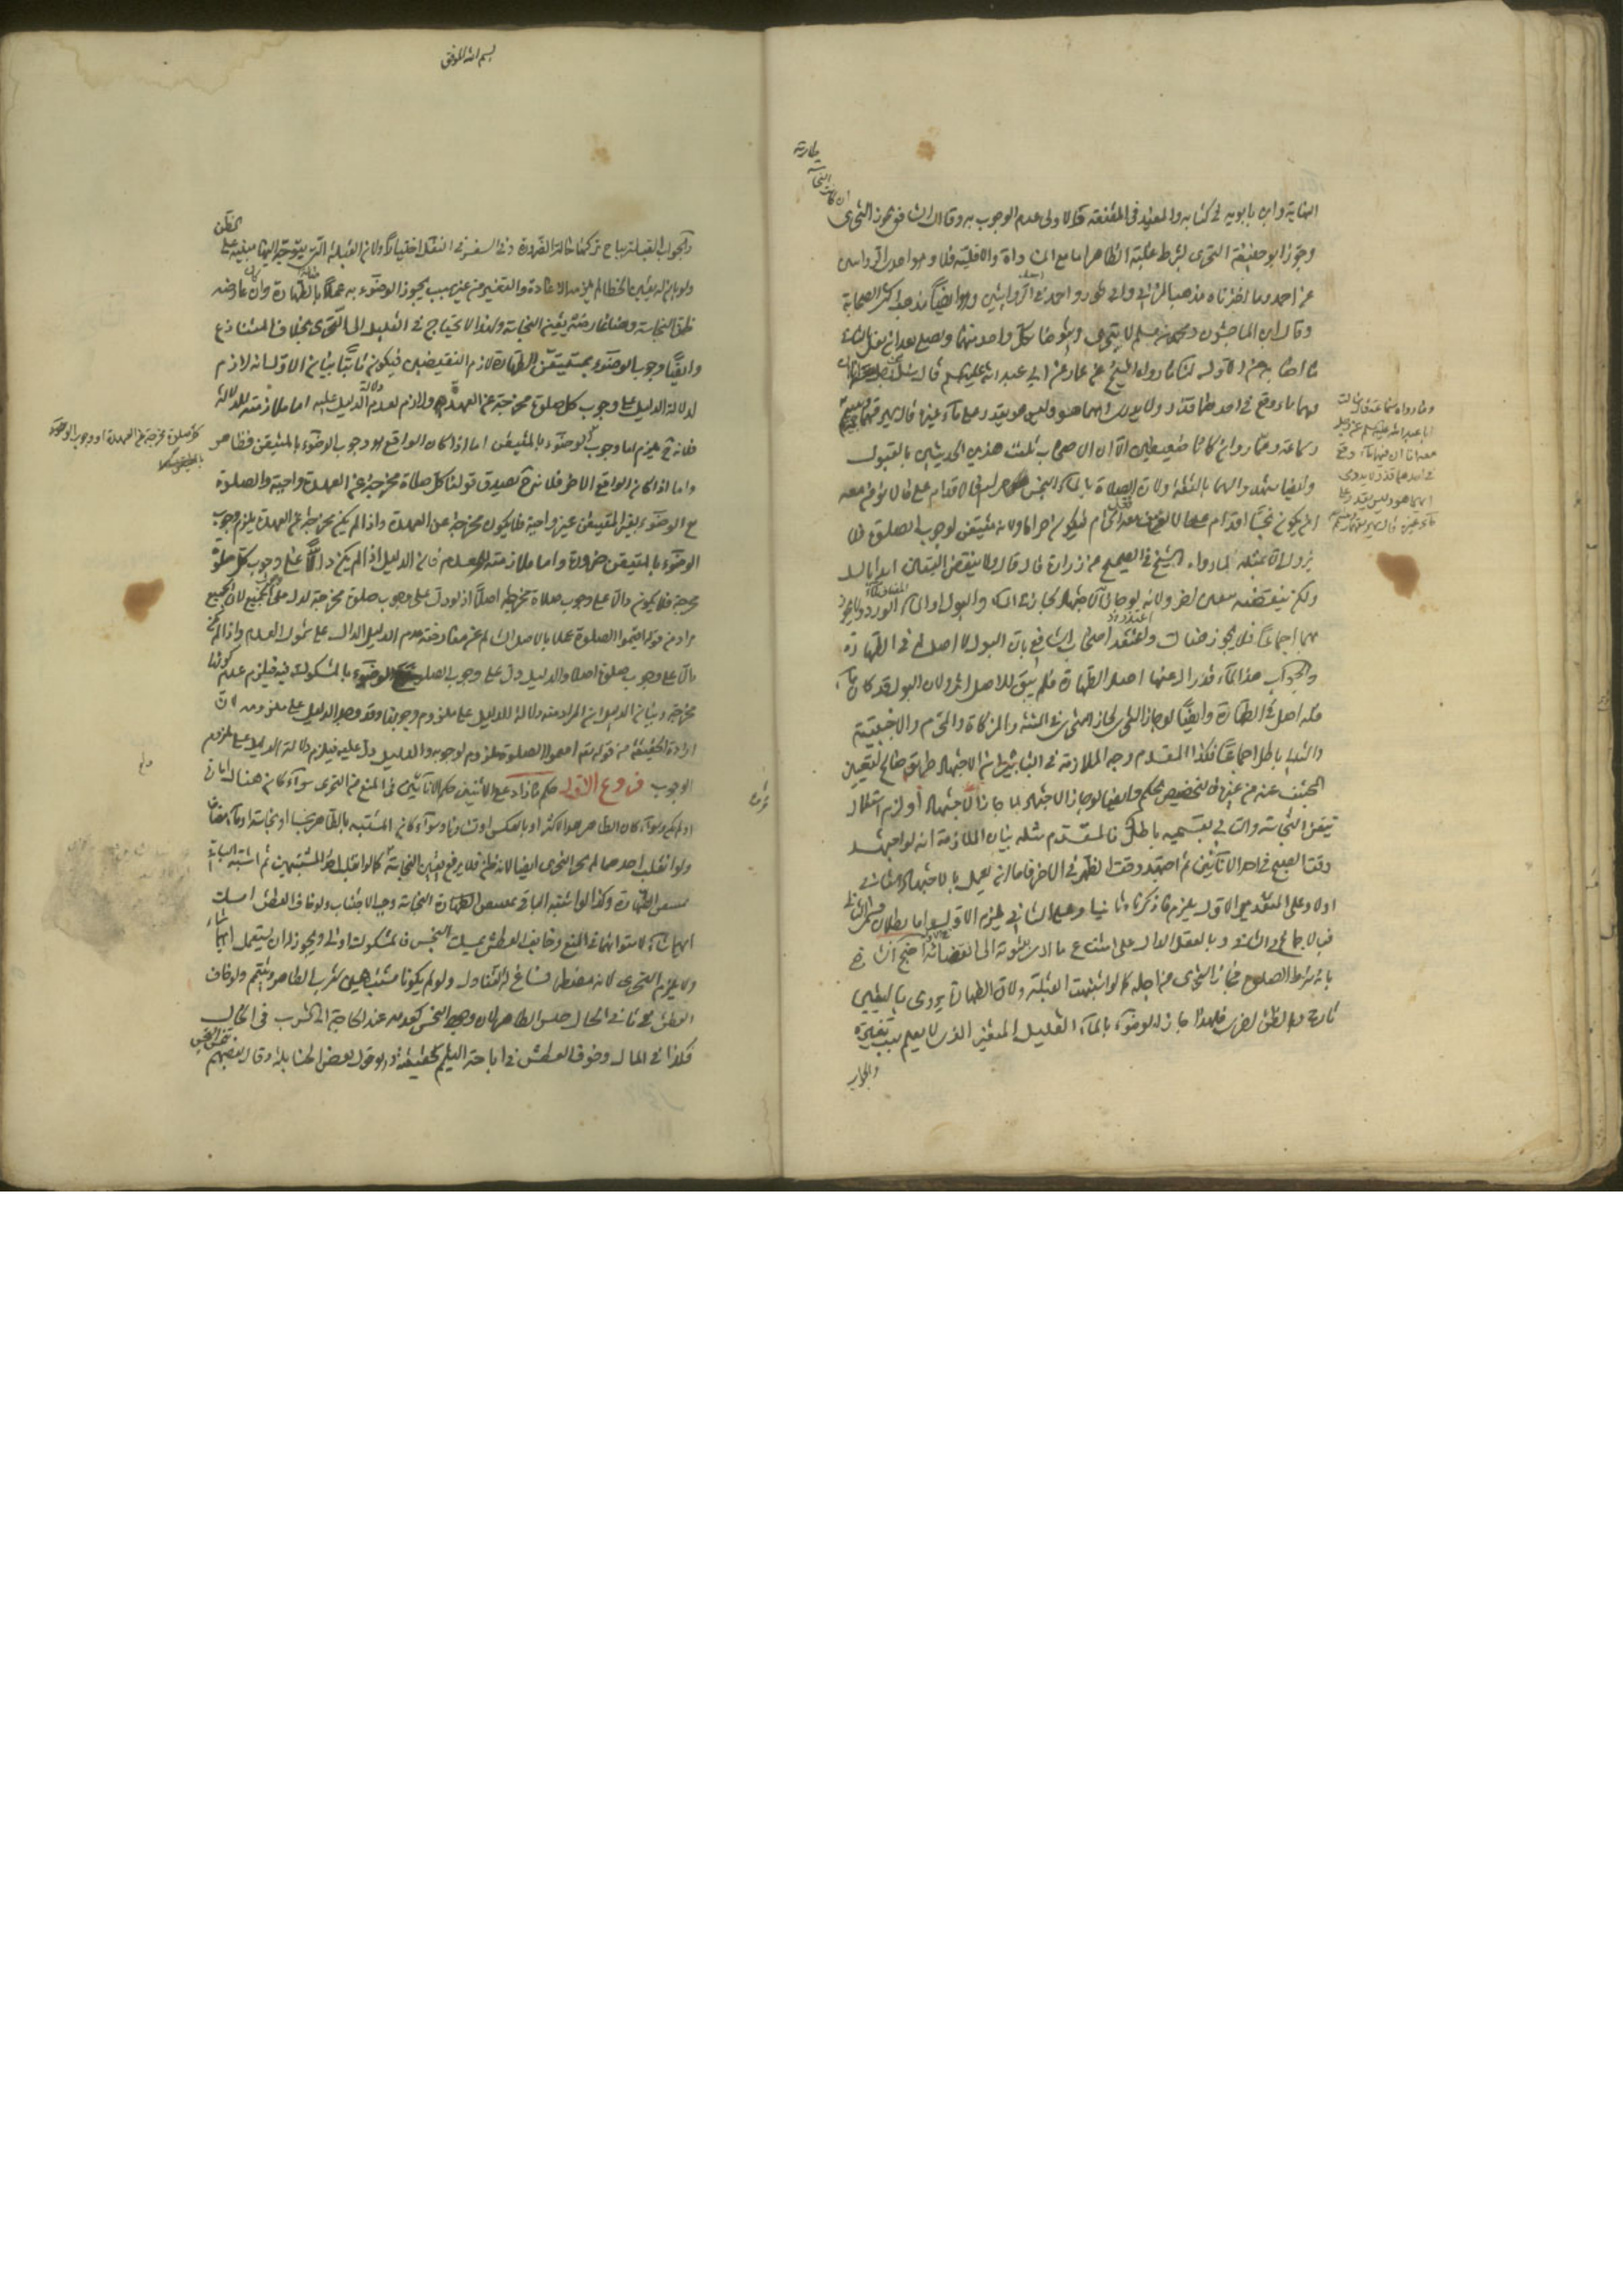 النهاية وابن بابويه في كتابه والمفيد في المقنعة قالا ولى عدم الوجوب به وقال الشافعي يجوز التحري
وجوز ابو حنيفة التحري بشرط غلبة الطاهر اما مع المساواة والاقلية فلا وهو احدى الروايتين
عن احمد وما اخترناه مذهب المزني وابي ثور واحمد في الروايتين وهو ايضا مذهب اكثر الصحابة
وقال ابن الماجشون ومحمد بن مسلم لا يتحرى ويتوضأ بكل واحد منهما ويصلي بعد ان يغسل
ما اصابه من الاولى لنا ما رواه الشيخ عن عمار عن ابي عبد الله عليه السلم قال سئل عن رجل معه اناءان
فيهما ماء وقع في احدهما قذر ولا يدري ايهما هو وليس يقدر على ماء غيره قال يهريقهما ويتيمم
وسماعة وعمار وان كانا ضعيفين الا ان الاصحاب تلقت هذين الحديثين بالقبول
وايضا شهدوا لهما بالثقة ولان الصلاة بالماء النجس حرام فالاقدام على ما لا يؤمن معه
ان يكون نجسا اقدام على ما لا يؤمن معه الحرام فيكون حراما ولانه متيقن لوجوب الصلوة فلا
يزول الا بمثله لما رواه الشيخ في الصحيح عن زرارة قال قال ولا ينقض اليقين ابدا بالشك
ولكن ينقضه بيقين اخر ولانه لو جاز الاجتهاد لجاز في الماء والبول او الماء الورد ولا يجوز
بهما اجماعا فلا يجوز هناك واعتذر اصحاب الشافعي بان البول لا اصل له في الطهارة
والجواب هذا الماء قد زال عنها اصل الطهارة فلم يبق للاصل اثر ولان البول قد كان ماء
فله اصل في الطهارة وايضا لو جاز التحري لجاز التحري في الميتة والمذكاة والمحرم والاجنبية
والتالي باطل اجماعا فكذا المقدم وجه الملازمة في الثاني اشتراط ان الاجتهاد طريق صالح لتعيين
المجتنب عنه من غيره والتخصيص تحكم وايضا لو جاز الاجتهاد لما جاز الاجتهاد او لزم استعمال
متيقن النجاسة والتالي بقسميه باطل فالمقدم مثله بيان الملازمة انه لو اجتهد
وقت الصبح في احد الاناءين ثم اجتهد وقت الظهر في الاخر فاما ان يعمل بالاجتهاد الثاني
او لا وعلى التقدير الاول يلزم ما ذكرناه ثانيا وعلى الثاني يلزم الاول واما بطلان القسم الثاني
فبالاجماع في الثاني وبالعقل الدال على امتناع ما ادى ثبوته الى انتفائه احتج الشافعي
بانه شرط الصلوة فجاز التحري من اجله كما لو اشتبهت القبلة ولان الطهارة تؤدى باليقين
تارة وبالظن اخرى فلهذا جاز له الوضوء بالماء القليل المتغير الذي لا يعلم سبب تغيره
والجواب
وما رواه سماعة قال سالت
ابا عبد الله عليه السلم عن رجل
معه اناءان فيهما ماء وقع
في احدهما قذر لا يدري
ايهما هو وليس يقدر على
ماء غيره قال يهريقهما ويتيمم
بسم الله الموفق
والجواب القبلة يباح تركها حالة الضرورة وفي السفر في النفل اختيارا ولان القبلة التي يتوجه اليها مبنية على الظن
ولو بان له يقين الخطا لم يلزمه الاعادة والتغير من غير سبب يجوز الوضوء به عملا باصالة الطهارة وان عارضه
ظن النجاسة وهنا عارضه يقين النجاسة ولهذا لا يحتاج في القليل الى التحري بخلاف المتنازع
وايضا وجوب الوضوء بمتيقن الطهارة لازم النقيضين فيكون ثابتا بيان الاول انه لازم
لدلالة الدليل على وجوب كل صلوة مخرجة عن العهدة ولازم لعدم دلالة الدليل عليه اما ملازمته للدلالة
فلانه ح يلزم اما وجوب الوضوء بالمتيقن اما اذا كان الواقع هو وجوب الوضوء بالمتيقن فظاهر
واما اذا كان الواقع الاخر فلانه ح يصدق قولنا كل صلاة مخرجة عن العهدة واجبة والصلوة
مع الوضوء بغير المتيقن غير واجبة فلا يكون مخرجة عن العهدة واذا لم يكن مخرجة عن العهدة يلزم وجوب
الوضوء بالمتيقن ضرورة واما ملازمته لعدم فلان الدليل اذا لم يكن دالا على وجوب كل صلوة
مخرجة فلا يكون دالا على وجوب صلاة مخرجة اصلا اذ لو دل على وجوب صلوة مخرجة لدل على الجميع لان الجميع
مراد من قوله اقيموا الصلوة عملا بالاصل السالم عن معارضة عدم الدليل الدال على شمول العدم واذا لم يكن
دالا على وجوب صلوة اصلا والدليل دل على وجوب الصلوة مع الوضوء بالمشكوك فيه فيلزم عدم كونها
مخرجة وبيان الدليل ان المراد منه دلالة الدليل على ملزوم وجوبها وقد وجد الدليل على ملزومه لان
ارادة الحقيقة من قوله تعالى اقيموا الصلوة ملزوم لوجوبه والدليل دل عليه فيلزم دلالة الدليل على ملزوم
الوجوب فروع الاول حكم ما زاد على الاثنين حكم الاناءين في المنع من التحري سواء كان هناك امارة
او لم يكن وسواء كان الطاهر هو الاكثر او بالعكس او تساويا وسواء كان المشتبه بالطاهر نجسا او نجاسة او ماء مضافا
ولو انقلب احدهما لم يجز التحري ايضا لانه ظن فلا يرفع يقين النجاسة كما لو انقلب احد المشتبهين ثم اشتبه الباقي
بمتيقن الطهارة وكذا لو اشتبه الباقي بمتيقن النجاسة وجب الاجتناب ولو خاف العطش امسك
ايهما شاء لاستوائهما في المنع وخايف العطش يمسك النجس فالمشكوك اولى ويجوز له ان يستعمل ايهما شاء
ولا يلزم التحري لانه مضطر فساغ له التناول ولو لم يكونا مشتبهين شرب الطاهر ويتيمم ولو خاف
العطش في ثاني الحال حبس الطاهر لان وجود النجس كعدمه عند الحاجة الى الشرب في الحال
فكذا في المال وخوف العطش في اباحة التيمم كحقيقته وهو قول بعض الحنابلة وقال بعضهم
كل صلوة مخرجة عن العهدة او وجوب الوضوء